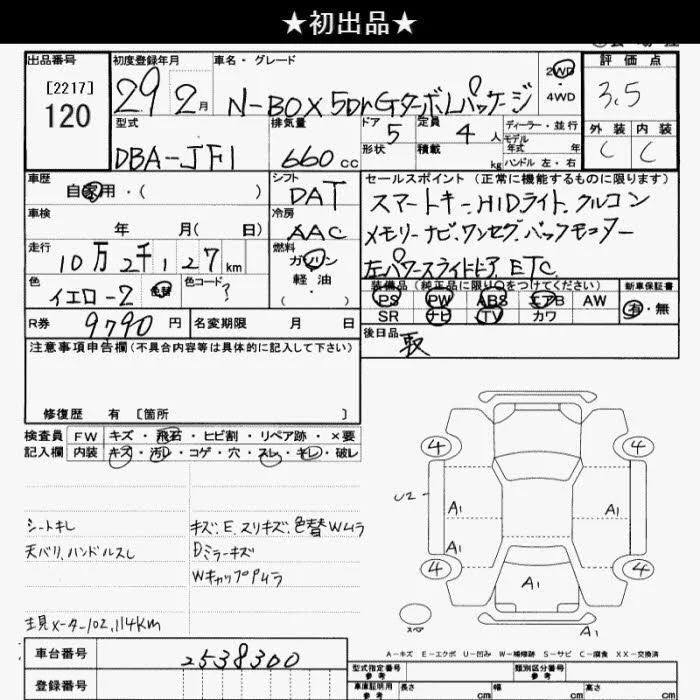 ★初出品★
出品番号
[2217]
120
初度登録年月
29 2月
車名・グレード
N-BOX 5Dr GターボLパッケージ
2WD
・4WD
評価点
3.5
外装 内装
C C
型式
DBA-JF1
排気量
660cc
ドア 5
形状
定員 4人
積載 kg
ディーラー・並行
モデル年式 年
ハンドル 左・右
車歴
自家用・( )
シフト
DAT
セールスポイント (正常に機能するものに限ります)
スマートキー、HIDライト、クルコン
メモリーナビ、ワンセグ、バックモニター
左パワースライドドア、ETC
車検
年 月( 日)
冷房
AAC
走行
10万2千127km
燃料
ガソリン
軽油
( )
色
イエロー2 色替
色コード ?
装備品 (純正品に限り○をつけてください)
PS PW ABS エアB AW
SR ナビ TV カワ
新車保証書
有・無
R券 9790円
名変期限 月 日
後日品
取
注意事項申告欄 (不具合内容等は具体的に記入して下さい)
修復歴 有 [箇所 ]
検査員記入欄
FW キズ・飛石・ヒビ割・リペア跡・×要
内装 キズ・汚レ・コゲ・穴・スレ・キレ・破レ
シートキレ
天バリ、ハンドルスレ
キズ、E、スリキズ、色替Wムラ
Dミラーキズ
WキャップPムラ
主見メーター102,114km
4 4
U2
A1 A1
A1
4 4
A1
スペア
A1
A-キズ E-エクボ U-凹み W-補修跡 S-サビ C-腐食 XX-交換済
車台番号
2538300
登録番号
型式指定番号
参考
類別区分番号
参考
車庫証明用
参考
長さ cm 幅 cm 高さ cm